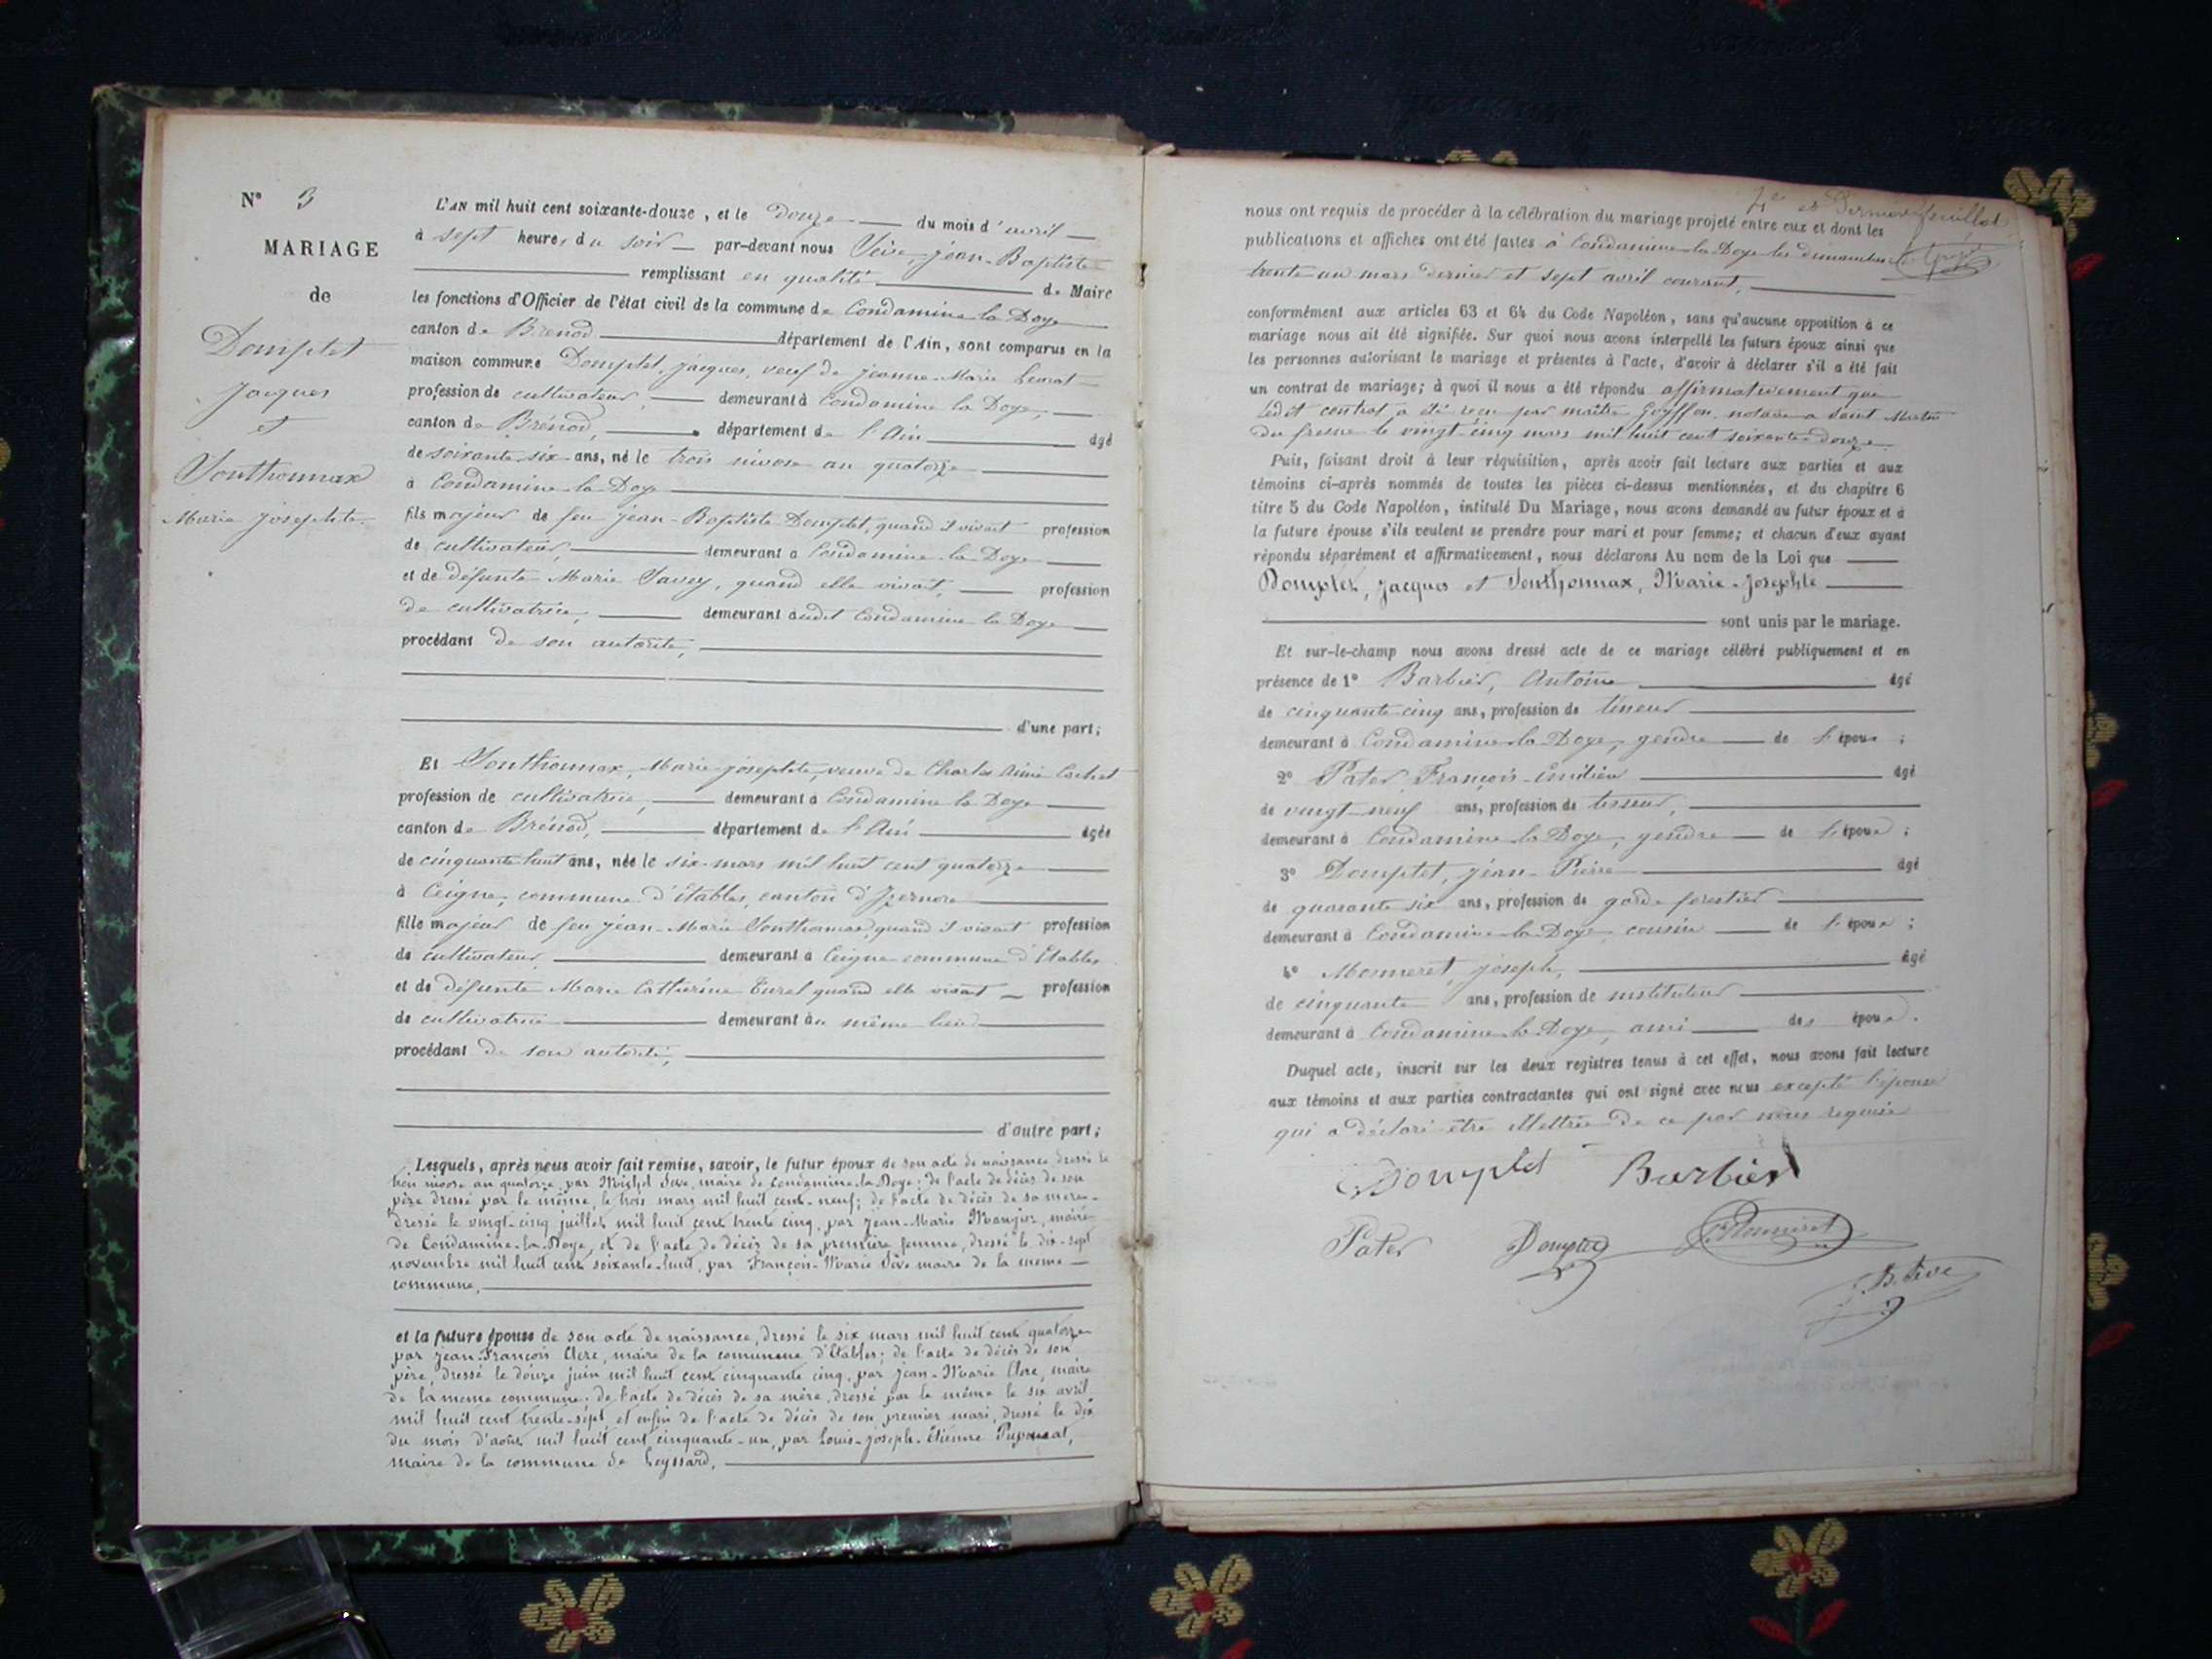 N° 3
MARIAGE
de
Domptet
Jacques
et
Sonthonnax
Marie Josephte
L'AN mil huit cent soixante-douze, et le douze du mois d'avril
à sept heures du soir par-devant nous Sève, Jean-Baptiste
remplissant en qualité de Maire
les fonctions d'Officier de l'état civil de la commune de Condamine la Doye
canton de Brénod département de l'Ain, sont comparus en la
maison commune Domptet, Jacques, veuf de Jeanne-Marie Levrat
profession de cultivateur, demeurant à Condamine la Doye,
canton de Brénod, département de l'Ain âgé
de soixante six ans, né le trois nivose an quatorze
à Condamine la Doye
fils majeur de feu Jean-Baptiste Domptet, quand il vivait profession
de cultivateur, demeurant à Condamine la Doye
et de défunte Marie Savey, quand elle vivait, profession
de cultivatrice, demeurant audit Condamine la Doye
procédant de son autorité,
d'une part;
Et Sonthonnax, Marie-Josephte, veuve de Charles Aimé Cochet
profession de cultivatrice, demeurant à Condamine la Doye
canton de Brénod, département de l'Ain âgée
de cinquante huit ans, née le six mars mil huit cent quatorze
à Ceigne, commune d'Etables, canton d'Izernore
fille majeur de feu Jean-Marie Sonthonnax, quand il vivait profession
de cultivateur, demeurant à Ceigne commune d'Etables
et de défunte Marie Catherine Turel quand elle vivait profession
de cultivatrice demeurant au même lieu
procédant de son autorité,
d'autre part;
Lesquels, après nous avoir fait remise, savoir, le futur époux de son acte de naissance dressé le
trois nivose an quatorze, par Michel Sève, maire de Condamine-la-Doye; de l'acte de décès de son
père dressé par le même, le trois mars mil huit cent-neuf; de l'acte de décès de sa mère
dressé le vingt-cinq juillet mil huit cent trente cinq, par Jean-Marie Manjot, maire
de Condamine-la-Doye, et de l'acte de décès de sa première femme, dressé le dix-sept
novembre mil huit cent soixante-huit, par François-Marie Sève maire de la même
commune,
et la future épouse de son acte de naissance, dressé le six mars mil huit cent quatorze
par Jean-François Clerc, maire de la commune d'Etables; de l'acte de décès de son
père, dressé le douze juin mil huit cent cinquante cinq, par Jean-Marie Clerc, maire
de la meme commune; de l'acte de décès de sa mère, dressé par le même le six avril
mil huit cent trente-sept, et enfin de l'acte de décès de son premier mari, dressé le dix
du mois d'août mil huit cent cinquante-un, par Louis-Joseph-Étienne Puponnat,
maire de la commune de Leyssard,
4e et Dernier feuillet
nous ont requis de procéder à la célébration du mariage projeté entre eux et dont les
publications et affiches ont été faites à Condamine la Doye les dimanches
trente un mars dernier et sept avril courant,
conformément aux articles 63 et 64 du Code Napoléon, sans qu'aucune opposition à ce
mariage nous ait été signifiée. Sur quoi nous avons interpellé les futurs époux ainsi que
les personnes autorisant le mariage et présentes à l'acte, d'avoir à déclarer s'il a été fait
un contrat de mariage; à quoi il nous a été répondu affirmativement que
ledit contrat a été reçu par maître Goyffon, notaire à Saint Martin
du fresne le vingt-cinq mars mil huit cent soixante douze
Puis, faisant droit à leur réquisition, après avoir fait lecture aux parties et aux
témoins ci-après nommés de toutes les pièces ci-dessus mentionnées, et du chapitre 6
titre 5 du Code Napoléon, intitulé Du Mariage, nous avons demandé au futur époux et à
la future épouse s'ils veulent se prendre pour mari et pour femme; et chacun d'eux ayant
répondu séparément et affirmativement, nous déclarons Au nom de la Loi que
Domptet, Jacques et Sonthonnax, Marie-Josephte
sont unis par le mariage.
Et sur-le-champ nous avons dressé acte de ce mariage célébré publiquement et en
présence de 1° Barbier, Antoine âgé
de cinquante-cinq ans, profession de tisseur
demeurant à Condamine la Doye, gendre de l'époux;
2° Pater François-Emilien âgé
de vingt-neuf ans, profession de tisseur,
demeurant à Condamine la Doye, gendre de l'époux;
3° Domptet, Jean-Pierre âgé
de quarante six ans, profession de garde forestier
demeurant à Condamine la Doye, cousin de l'époux;
4° Monneret, Joseph, âgé
de cinquante ans, profession de instituteur
demeurant à Condamine la Doye, ami des époux.
Duquel acte, inscrit sur les deux registres tenus à cet effet, nous avons fait lecture
aux témoins et aux parties contractantes qui ont signé avec nous excepté l'épouse
qui a déclaré être illettrée de ce par nous requise
Domptet Barbier
Pater Domptet Monneret
J. B. Sève